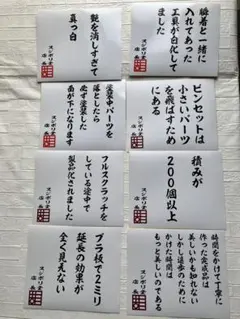 瞬着と一緒に
入れてあった
工具が白化して
ました
艶を消しすぎて
真っ白
ピンセットは
小さいパーツ
を飛ばすため
にある
塗装中パーツを
落としたら
必ず塗装した
面が下になります
積みが
200個以上
フルスクラッチを
している途中で
製品化されました
時間をかけて丁寧に
作った完成品は
美しいかも知れない
しかし途中のために
かけた時間は
もっと美しいのである
プラ板で2ミリ
延長の効果が
全く見えない